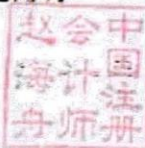 中国注册
会计师
赵海舟